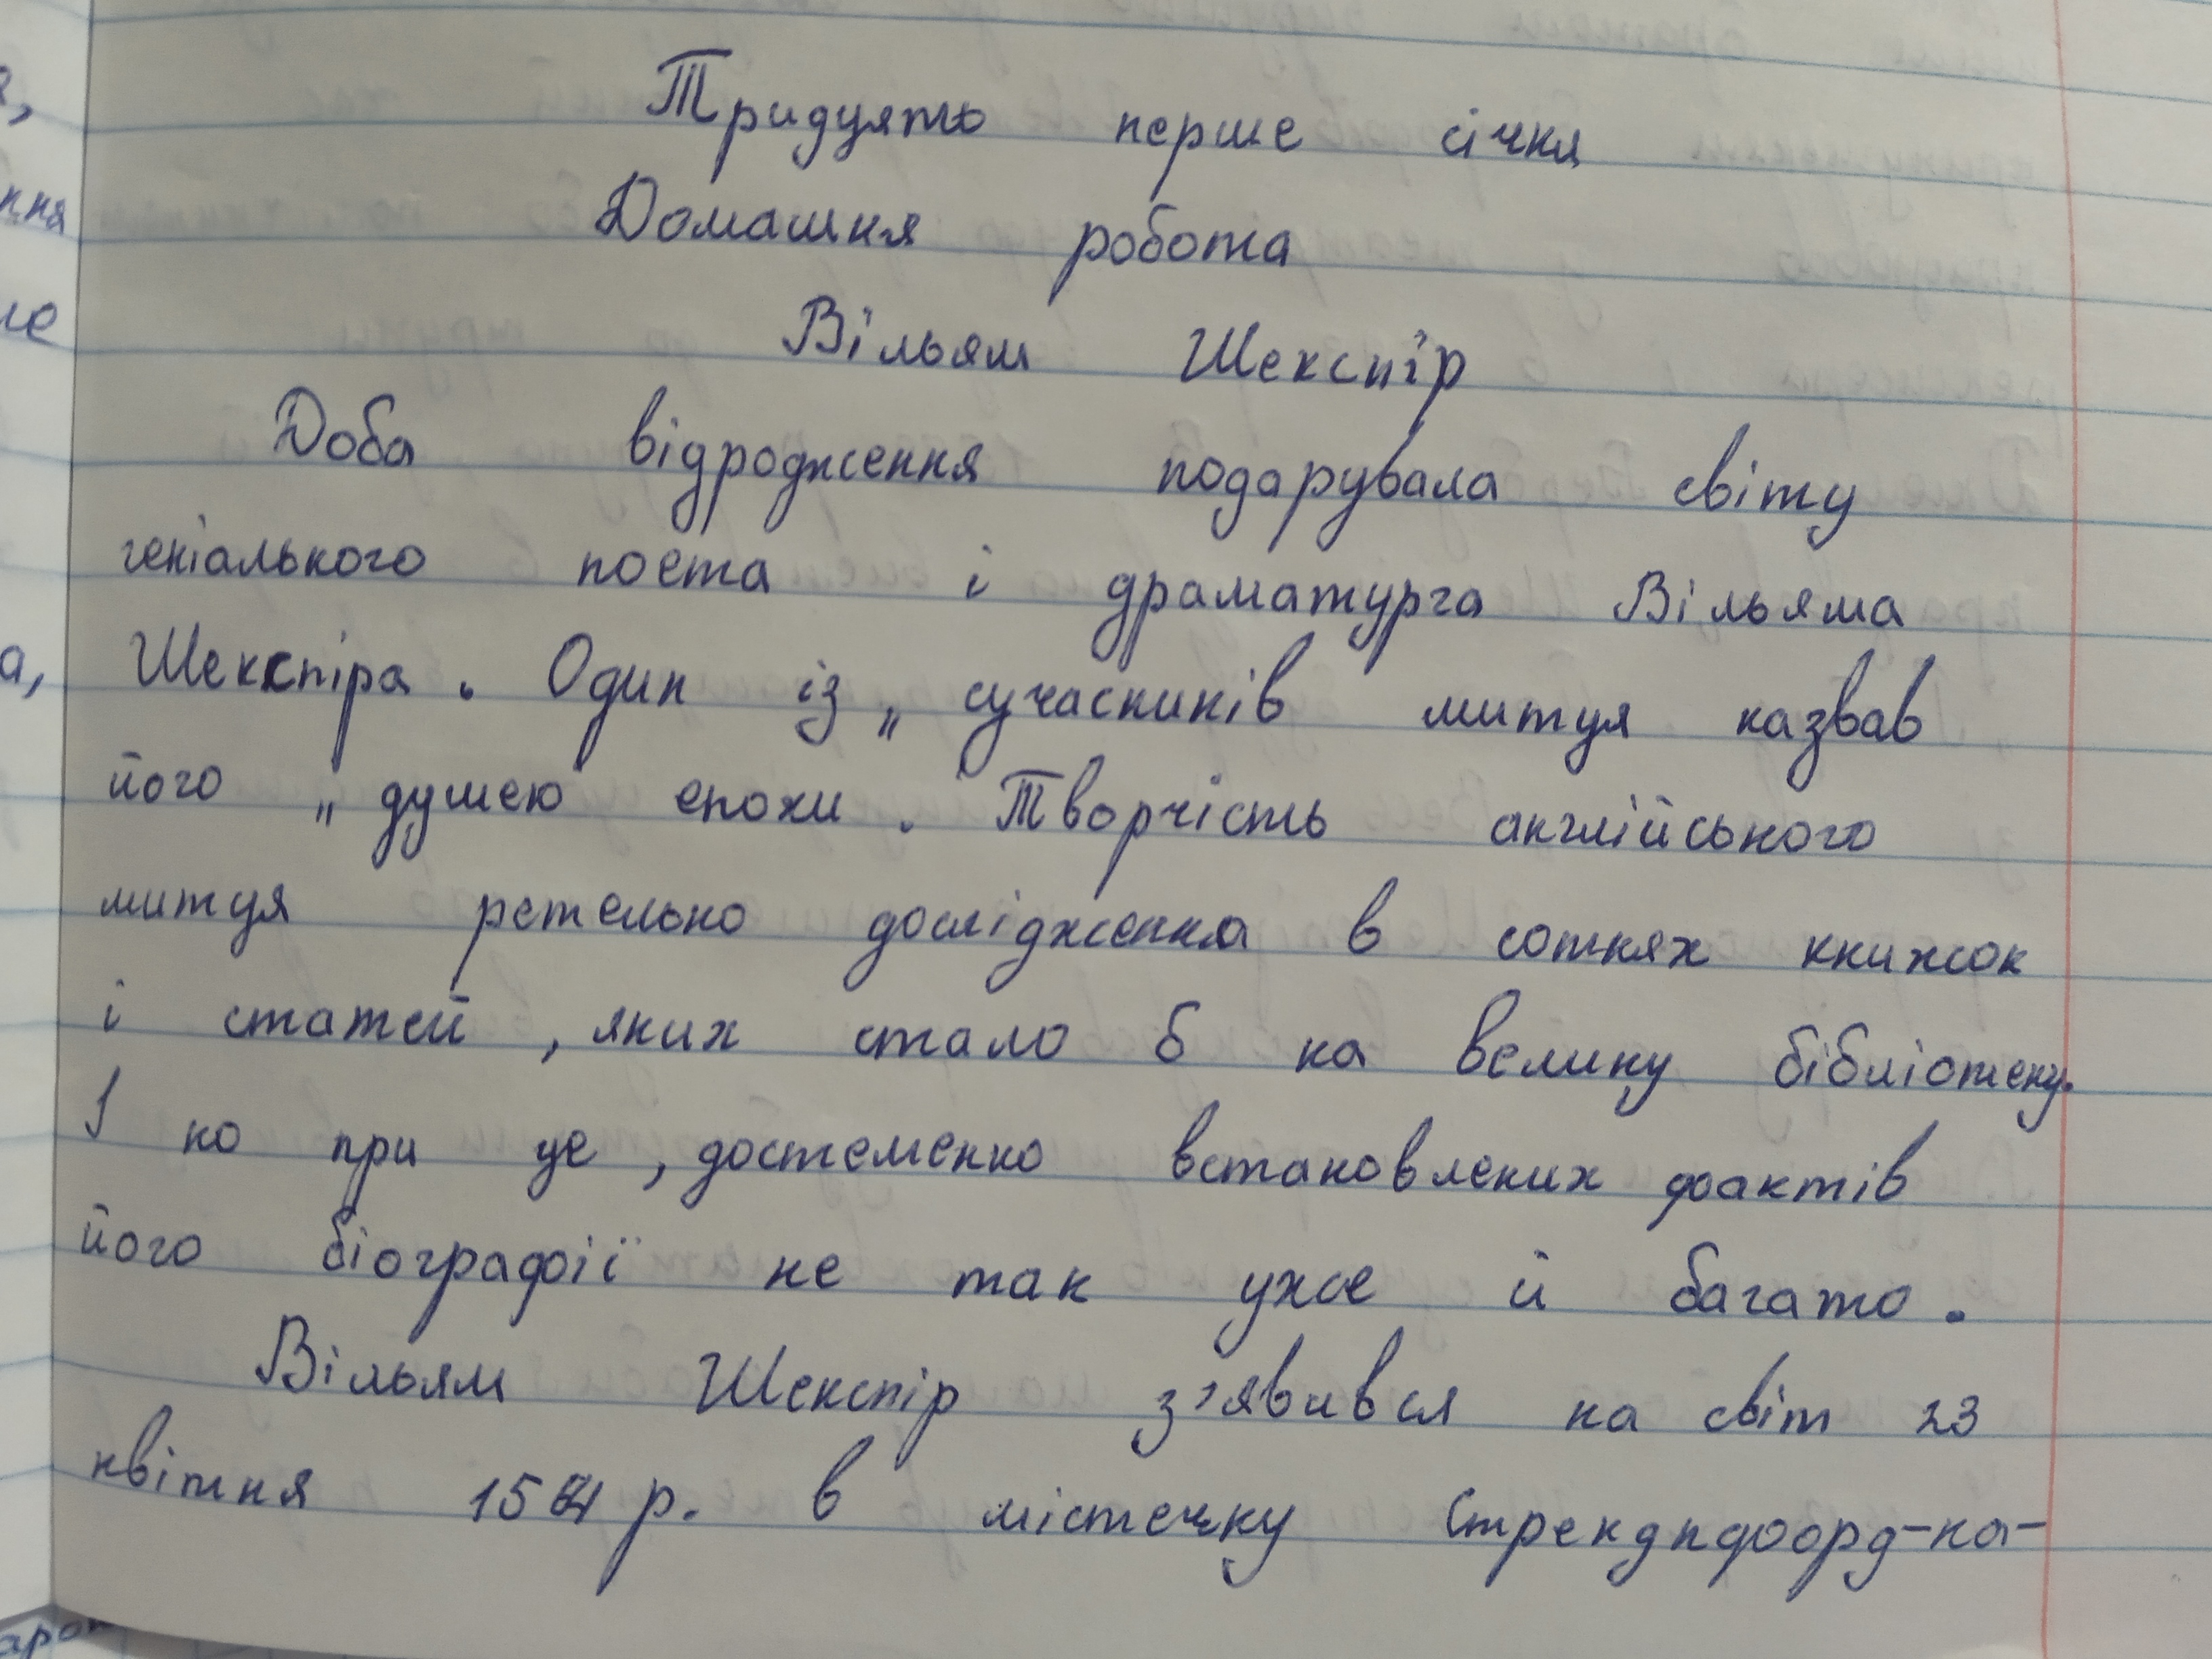 Тридцять перше січня
Домашня робота
Вільям Шекспір
Доба відродження подарувала світу
геніального поета і драматурга Вільяма
Шекспіра. Один із „ сучасників митця назвав
його „ душею епохи. Творчість англійського
митця ретельно досліджена в сотнях книжок
і статей, яких стало б на велику бібліотеку.
І но при це, достеменно встановлених фактів
його біографії не так уже й багато.
Вільям Шекспір з'явився на світ 23
квітня 1564 р. в містечку Стрендпфорд-на-